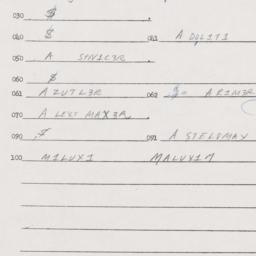 030 $
040 $ 041 A DOLITI
050 A SYNIC3R
060 $
061 A ZUTL3R 062 $= A RIM3R
070 A LEXT MAX3R
090 $ 091 A STELDMAY
100 MILUXI MALUXIM